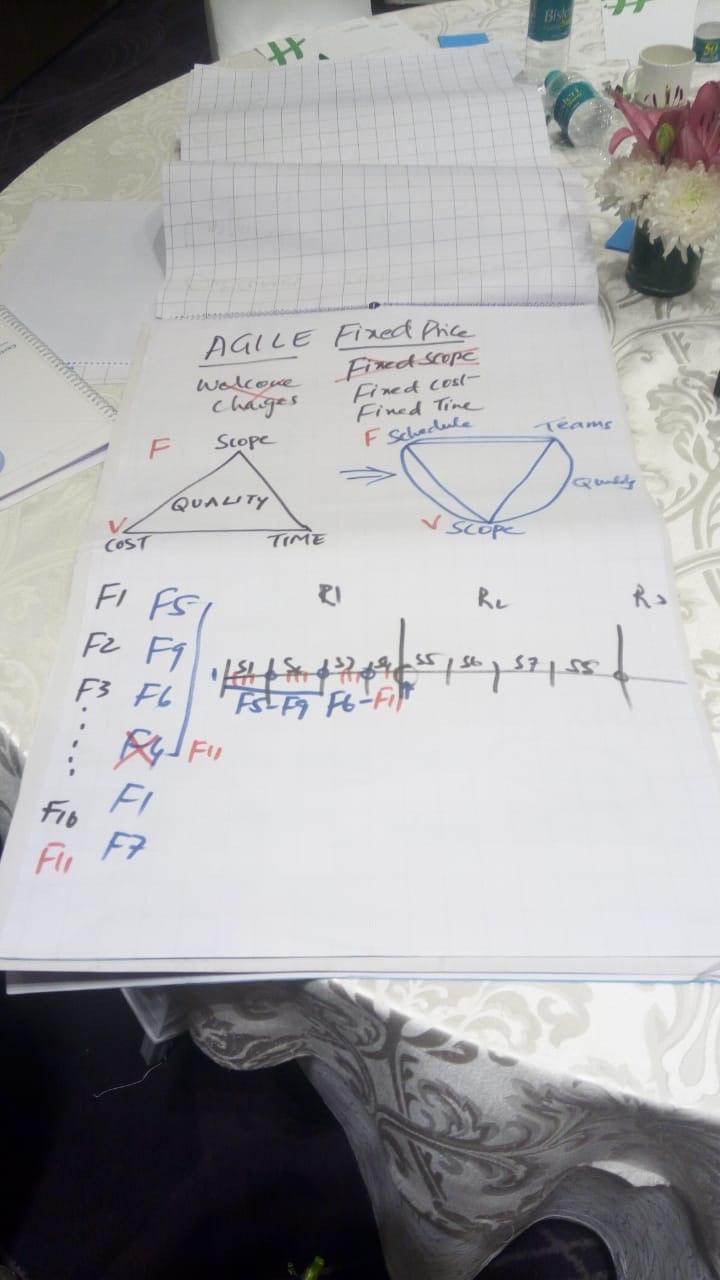 AGILE Fixed Price
Welcome Fixed Scope
Changes Fixed Cost
Fixed Time
F Scope
QUALITY
V
COST TIME
F Schedule Teams
Quality
V Scope
F1 F5
F2 F9
F3 F6
F4 F11
F10 F1
F11 F7
R1 R2 R3
S1 S2 S3 S4 S5 S6 S7 S8
F5-F9 F6-F11
Bisleri
50